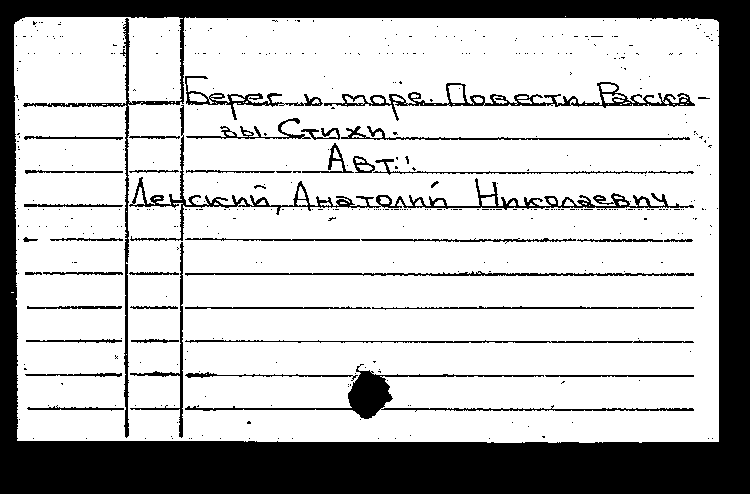 Берег и море. Повести. Расска-
зы. Стихи.
Авт.:
Ленский, Анатолий Николаевич.